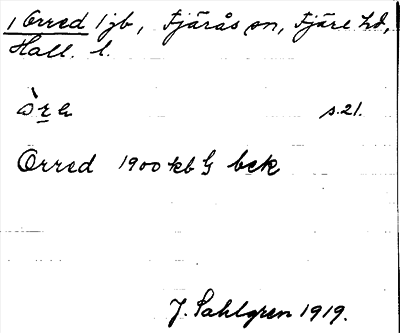 1 Orred 1 jb, Fjärås sn, Fjäre hd,
Hall. l.
òre s. 21.
Orred 1900 kb G bek
J. Sahlgren 1919.